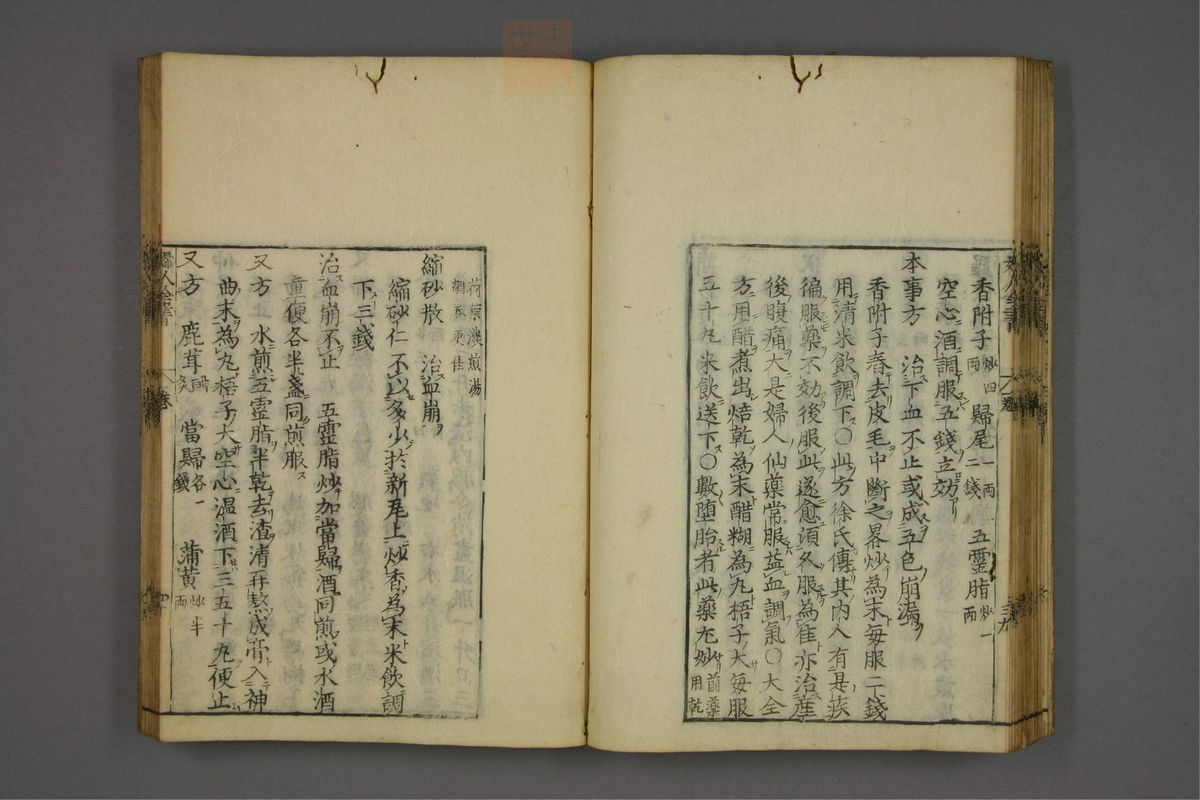 香附子炒四兩 歸尾一兩二錢 五靈脂炒一兩
空心酒調服五錢立効
本事方 治下血不止或成五色崩漏
香附子舂去皮毛中斷之畧炒為末每服二錢
用清米飲調下○此方徐氏傳其内人有是疾
徧服藥不効後服此遂愈須久服為佳亦治産
後腹痛大是婦人仙藥常服益血調氣○大全
方用醋煮出焙乾為末醋糊為丸梧子大每服
五十丸米飲送下○數堕胎者此藥尤妙前藥用乾
荷葉濃煎湯調服更佳
縮砂散 治血崩
縮砂仁不以多少於新瓦上炒香為末米飲調
下三錢
治血崩不止 五靈脂炒加當歸酒同煎或水酒
童便各半盞同煎服
又方 水煎五靈脂半乾去渣清再熬成膏入神
曲末為丸梧子大空心温酒下三五十丸便止
又方 鹿茸酥炙 當歸各一錢 蒲黄炒半兩